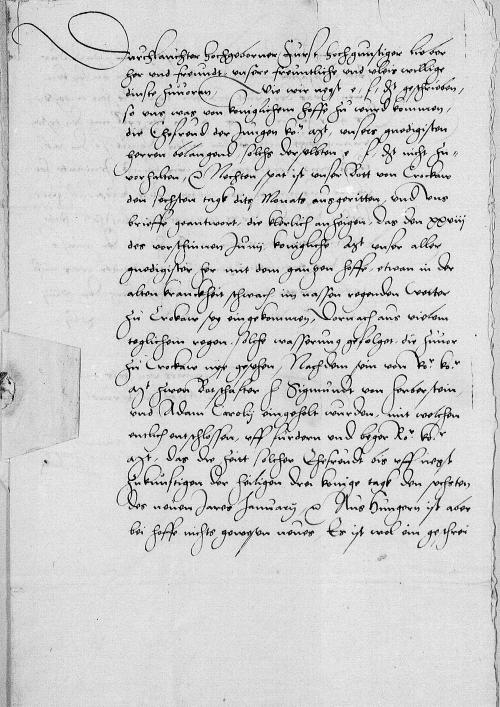 Durchlauchter hochgeborner Furst hochgunstiger lieber
her und freundt unsere freuntliche und vleis willige
dinste zuvoren, Wie wir negst e f dt geschrieben,
so uns was von koniglichem hoffe zu wurd kommen,
die Ehefreud der jungen koᵉ mt, unsers gnedigsten
herren belangend solchs derselben e f dt nicht zu
vorhalten, Nechten spat ist unser Bott von Crokaw
den sechsten tagk dits Monats ausgeritten, und uns
brieffe geantwort, die klerlich anzeigen, das den xxviij
des vorschinnen Junij konigliche Mt unser aller
gnedigister her mit dem gantzen hoffe etwan in der
alten kranckheit schwach im nassen regenden wetter
zu Crokaw sey einkommen, Dornach aus vielem
teglichem regen solche wasserung gefolget die zuvor
zu Crokaw nye gesehen, Nachdem sein von Rʳ koʳ
mt zwen Botschafter h Sigmundt von herberstein
und Adam Carolij eingeholt wurden, mit welchen
entlich entschlossen, uff furdern und beger Rʳ koʳ
mt, das die zeit solcher Ehefreudt bis uff negst
zukunftigen der heiligen drei konige tagk den sechsten
des neuen Jares Januarij Aus Hungern ist aber
bei hoffe nichts gewissen neues Es ist wol ein geschrei